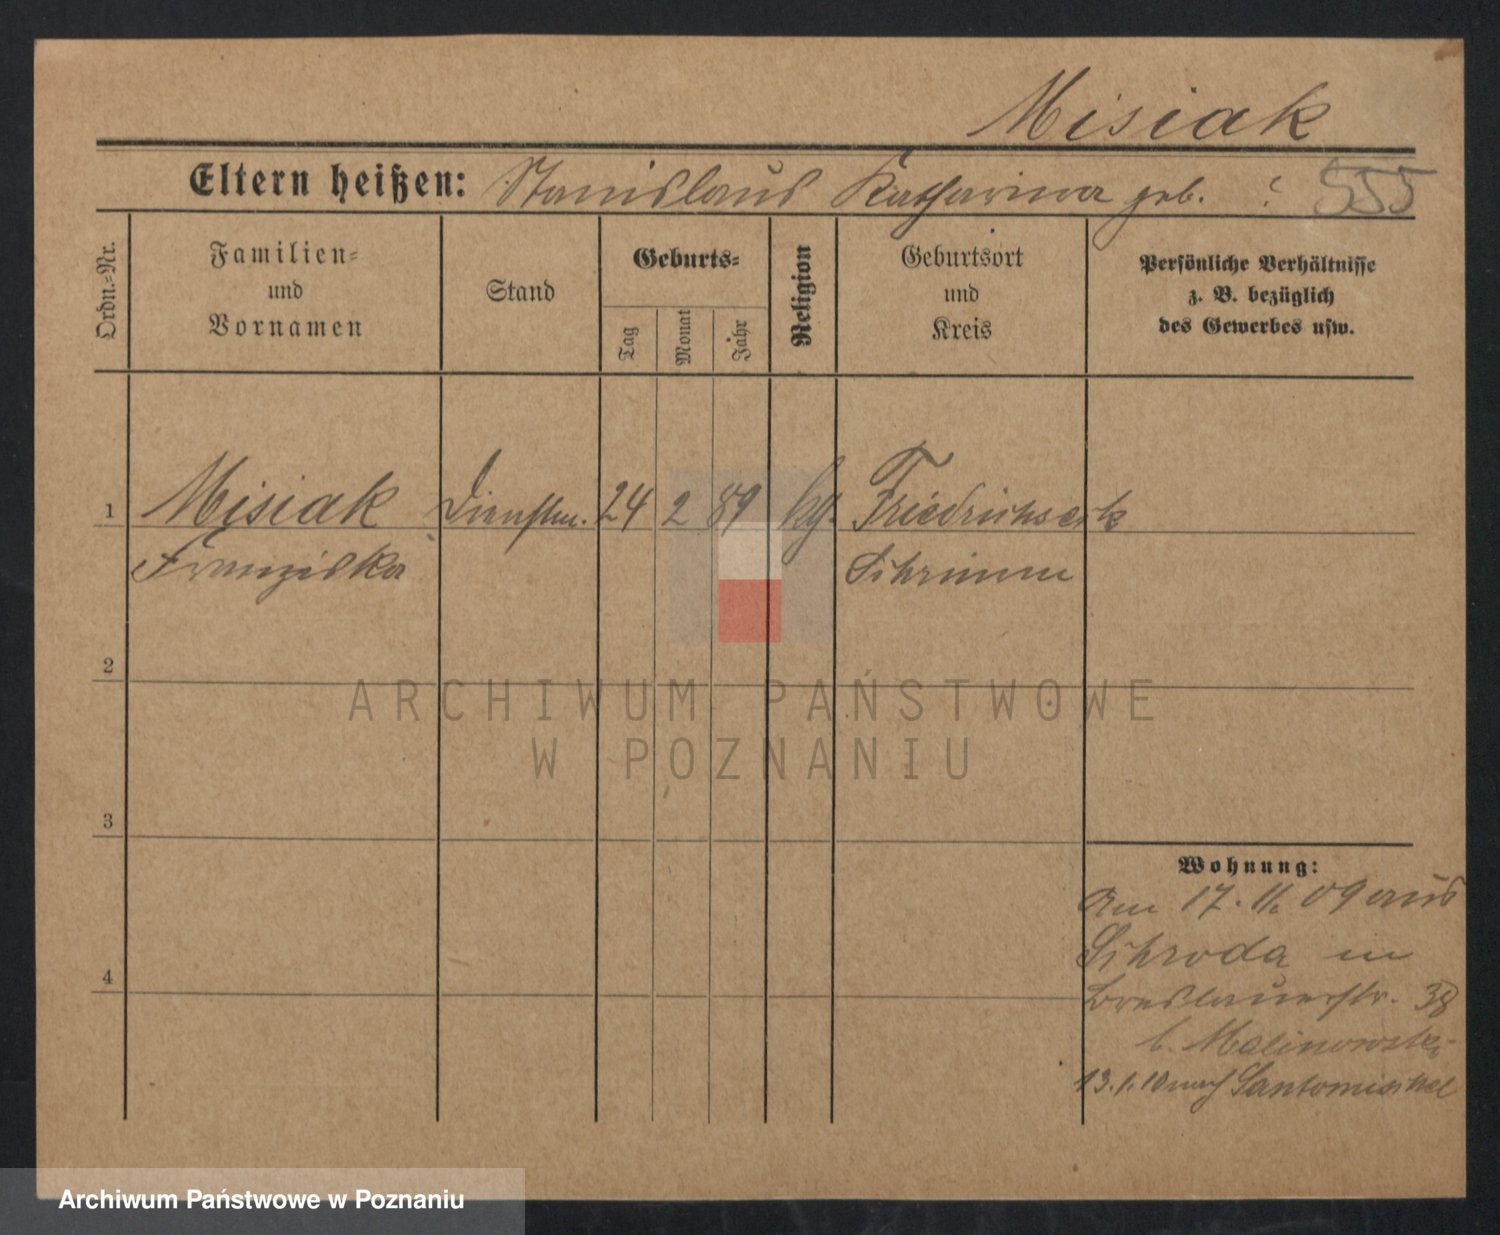 Misiak
Eltern heißen: Stanislaus Katharina geb. ? 555
Ordn.-Nr.
Familien-
und
Vornamen
Stand
Geburts-
Tag
Monat
Jahr
Religion
Geburtsort
und
Kreis
Persönliche Verhältnisse
z. B. bezüglich
des Gewerbes usw.
1 Misiak Dienstm. 24 2 89 kg. Friedrichseck
Franziska Schrimm
2
ARCHIWUM PAŃSTWOWE
W POZNANIU
3
Wohnung:
Am 17. 11. 09 aus
Schroda in
4
Breslauerstr. 38
b. Malinowski
13.1.10 nach Santomischel
Archiwum Państwowe w Poznaniu